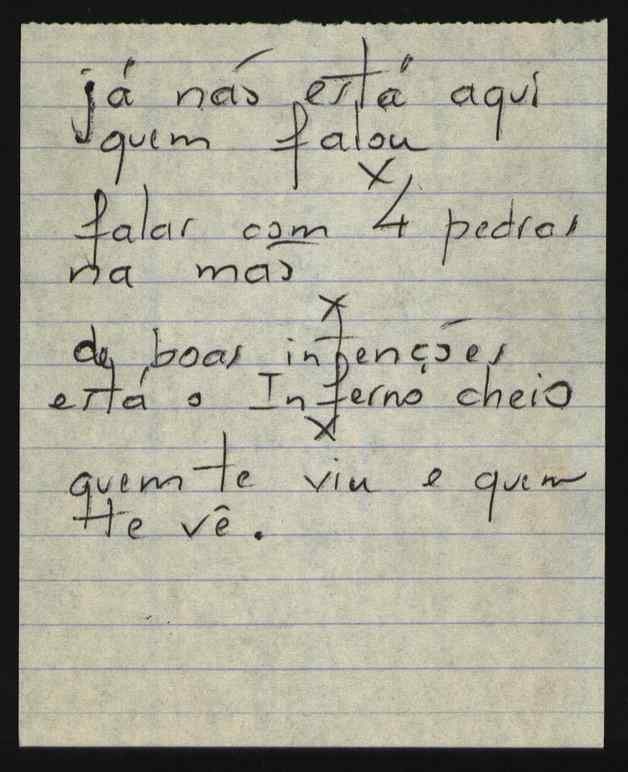 já não está aqui
quem falou
x
falar com 4 pedras
na mão
x
de boas intenções
está o Inferno cheio
x
quem te viu e quem
te vê.